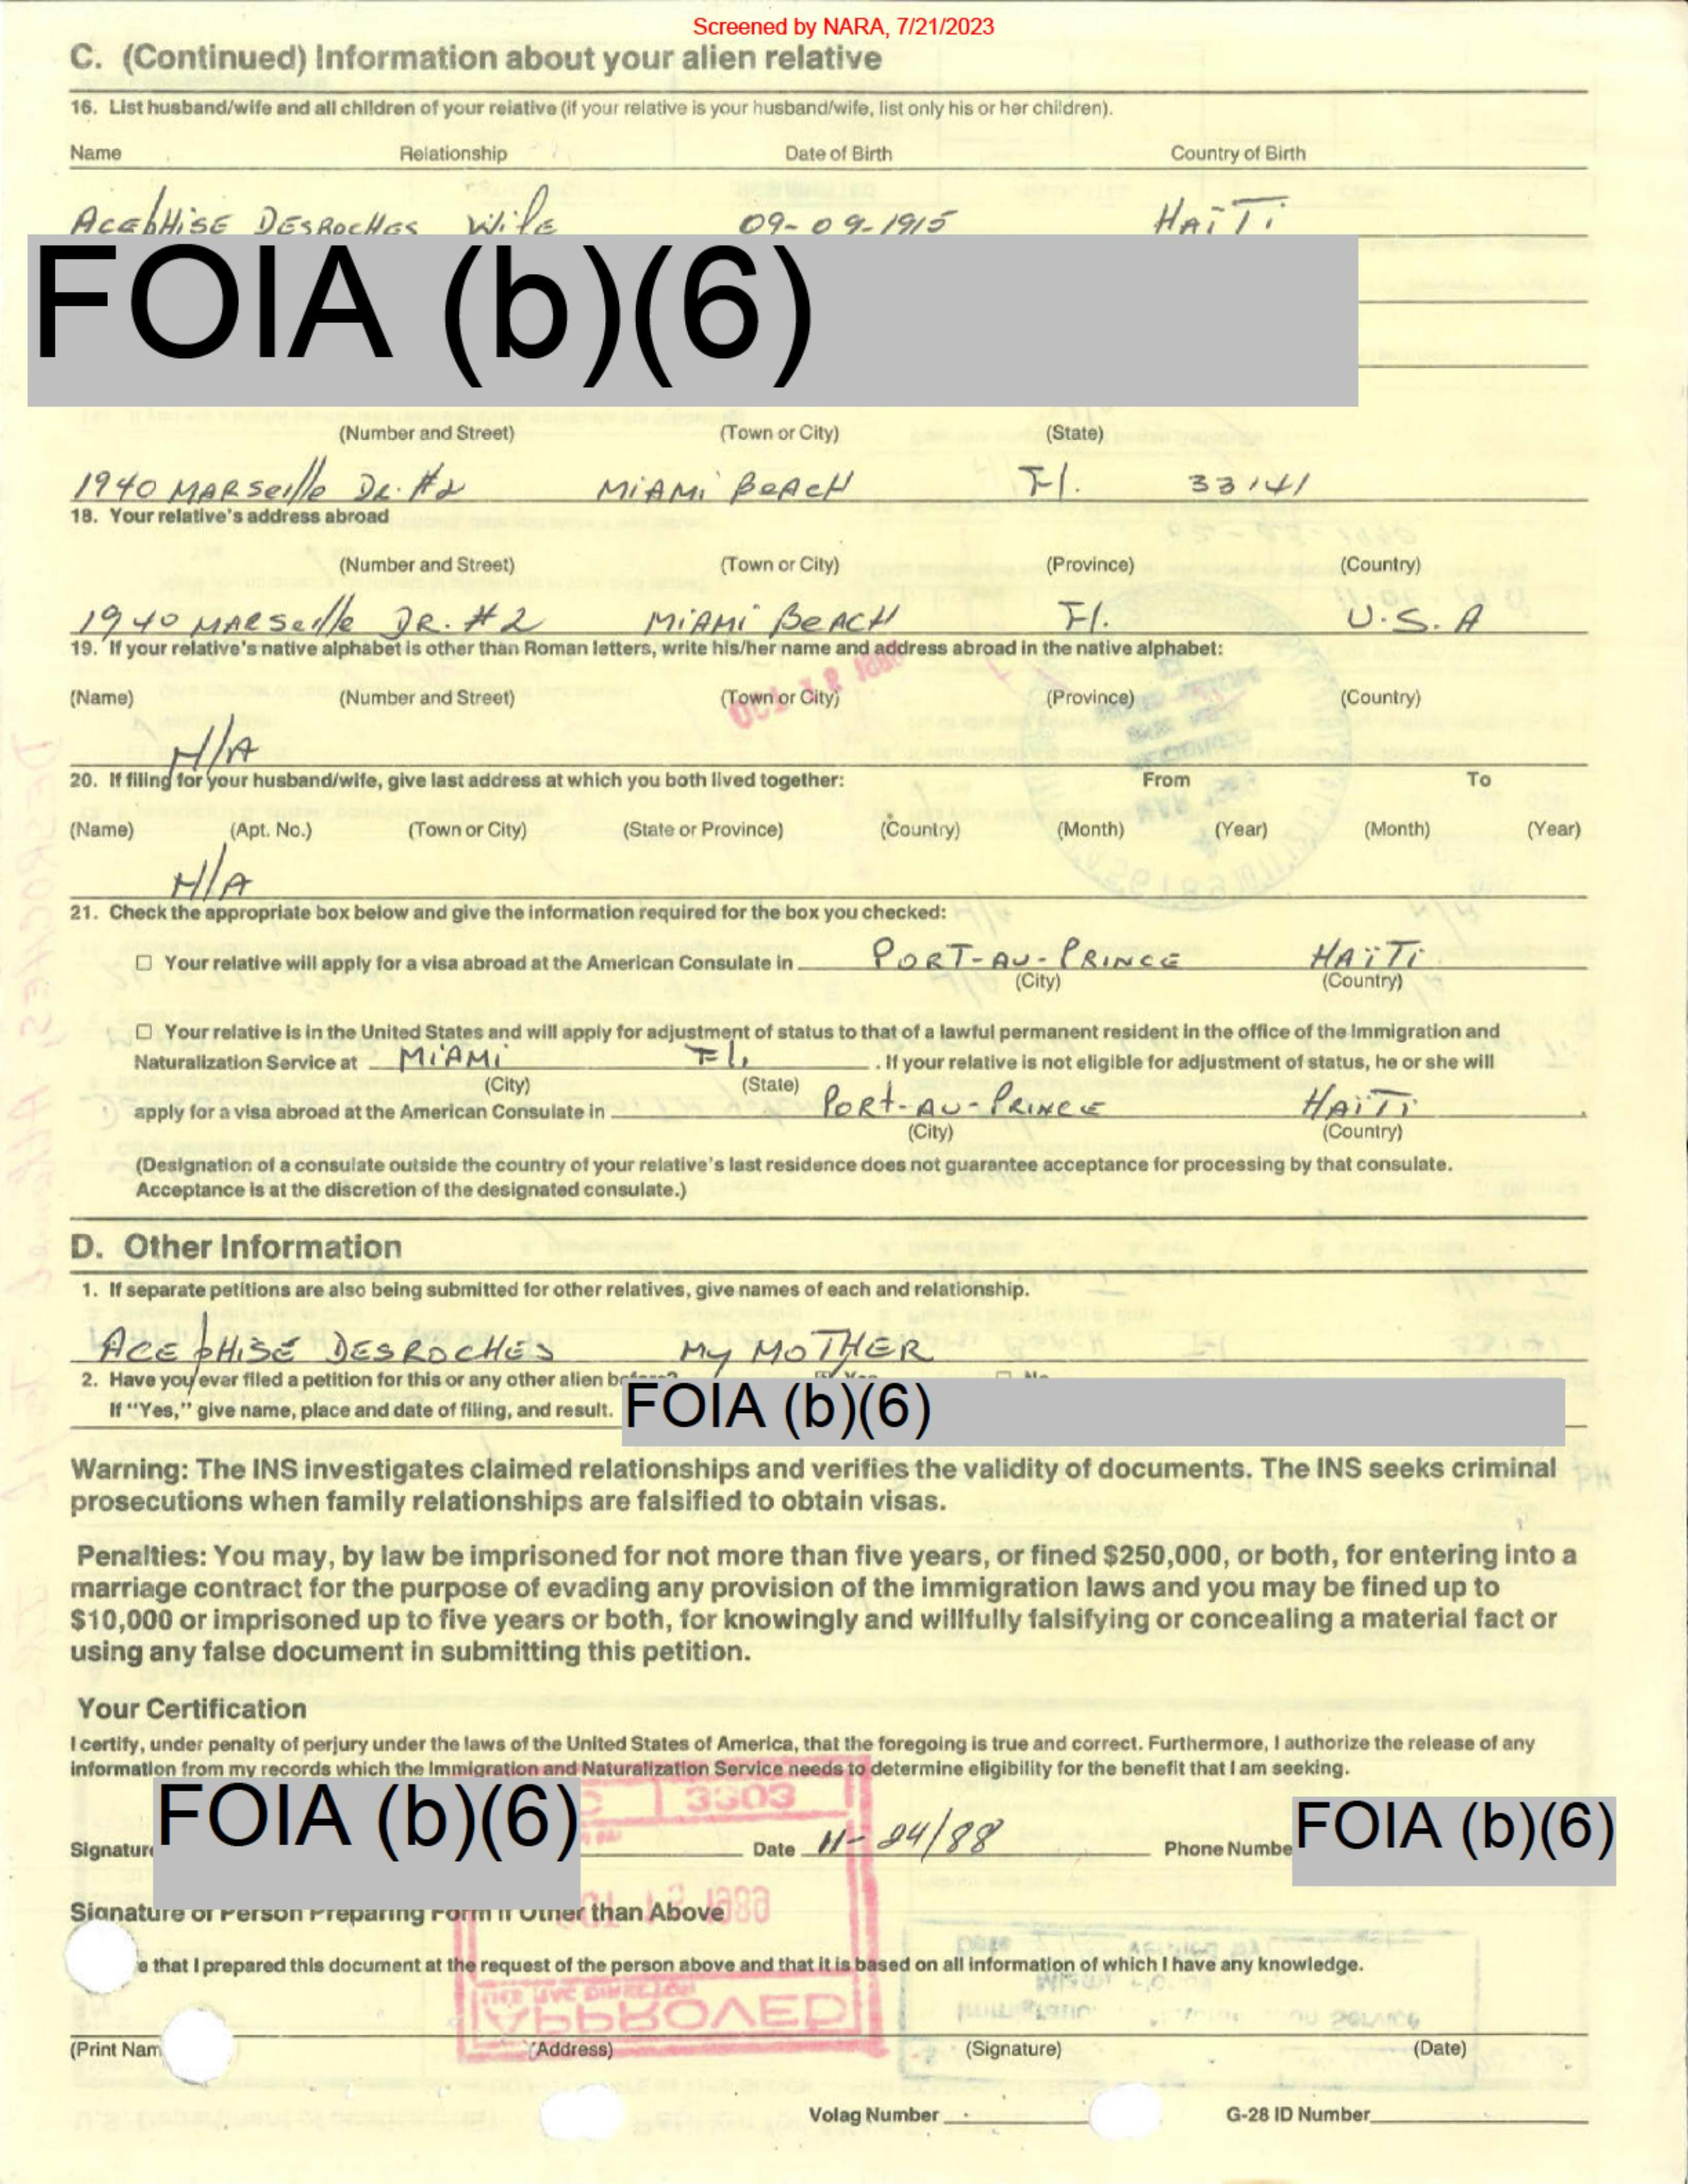 Screened by NARA, 7/21/2023
C. (Continued) Information about your alien relative
16. List husband/wife and all children of your relative (if your relative is your husband/wife, list only his or her children).
Name Relationship Date of Birth Country of Birth
ACEpHiSE DESROCHES Wife 09-09-1915 HAÏTi
FOIA (b)(6)
(Number and Street) (Town or City) (State)
1940 MARSeille DR. #2 MiAMi BeACH Fl. 33141
18. Your relative's address abroad
(Number and Street) (Town or City) (Province) (Country)
1940 MARSeille DR. #2 MiAMi BeACH Fl. U.S.A
19. If your relative's native alphabet is other than Roman letters, write his/her name and address abroad in the native alphabet:
(Name) (Number and Street) (Town or City) (Province) (Country)
N/A
20. If filing for your husband/wife, give last address at which you both lived together: From To
(Name) (Apt. No.) (Town or City) (State or Province) (Country) (Month) (Year) (Month) (Year)
N/A
21. Check the appropriate box below and give the information required for the box you checked:
☐ Your relative will apply for a visa abroad at the American Consulate in PORT-AU-PRINCE HAÏTi
(City) (Country)
☐ Your relative is in the United States and will apply for adjustment of status to that of a lawful permanent resident in the office of the Immigration and
Naturalization Service at MiAMi Fl. . If your relative is not eligible for adjustment of status, he or she will
(City) (State)
apply for a visa abroad at the American Consulate in PORt-AU-PRINCE HAÏTi .
(City) (Country)
(Designation of a consulate outside the country of your relative's last residence does not guarantee acceptance for processing by that consulate.
Acceptance is at the discretion of the designated consulate.)
D. Other Information
1. If separate petitions are also being submitted for other relatives, give names of each and relationship.
ACEpHiSE DESROCHES My MOTHER
2. Have you ever filed a petition for this or any other alien before? Yes No
If "Yes," give name, place and date of filing, and result. FOIA (b)(6)
Warning: The INS investigates claimed relationships and verifies the validity of documents. The INS seeks criminal
prosecutions when family relationships are falsified to obtain visas.
Penalties: You may, by law be imprisoned for not more than five years, or fined $250,000, or both, for entering into a
marriage contract for the purpose of evading any provision of the immigration laws and you may be fined up to
$10,000 or imprisoned up to five years or both, for knowingly and willfully falsifying or concealing a material fact or
using any false document in submitting this petition.
Your Certification
I certify, under penalty of perjury under the laws of the United States of America, that the foregoing is true and correct. Furthermore, I authorize the release of any
information from my records which the Immigration and Naturalization Service needs to determine eligibility for the benefit that I am seeking.
Signature FOIA (b)(6) Date 11-24/88 Phone Numbe FOIA (b)(6)
Signature of Person Preparing Form if Other than Above
e that I prepared this document at the request of the person above and that it is based on all information of which I have any knowledge.
APPROVED
(Print Nam (Address) (Signature) (Date)
Volag Number G-28 ID Number